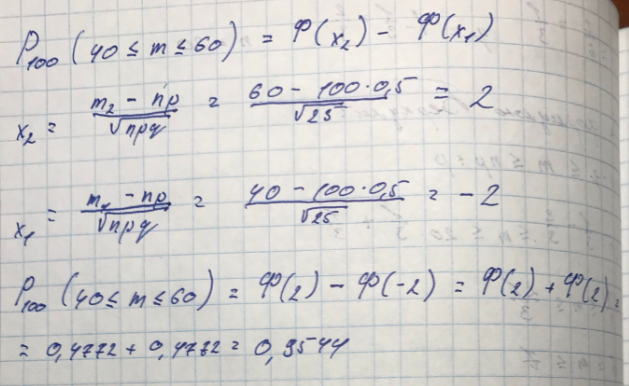 P₁₀₀ (40 ≤ m ≤ 60) = Φ(x₂) - Φ(x₁)
x₂ = (m₂ - np)/√npq = (60 - 100·0,5)/√25 = 2
x₁ = (m₁ - np)/√npq = (40 - 100·0,5)/√25 = -2
P₁₀₀ (40 ≤ m ≤ 60) = Φ(2) - Φ(-2) = Φ(2) + Φ(2) =
= 0,4772 + 0,4772 = 0,9544